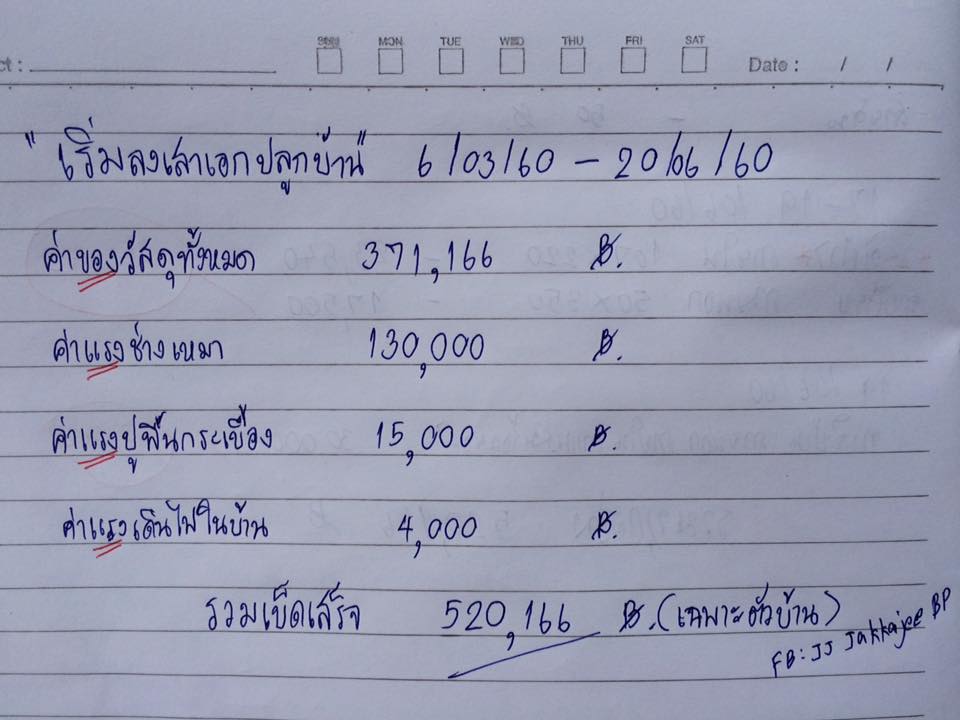 ct : SUN MON TUE WED THU FRI SAT Date : / /
"เริ่มลงเสาเอกปลูกบ้าน" 6/03/60 - 20/06/60
ค่าของวัสดุทั้งหมด 371,166 ฿.
ค่าแรงช่างเหมา 130,000 ฿.
ค่าแรงปูพื้นกระเบื้อง 15,000 ฿.
ค่าแรงเดินไฟในบ้าน 4,000 ฿.
รวมเบ็ดเสร็จ 520,166 ฿. (เฉพาะตัวบ้าน)
FB: JJ Jakkajee BP